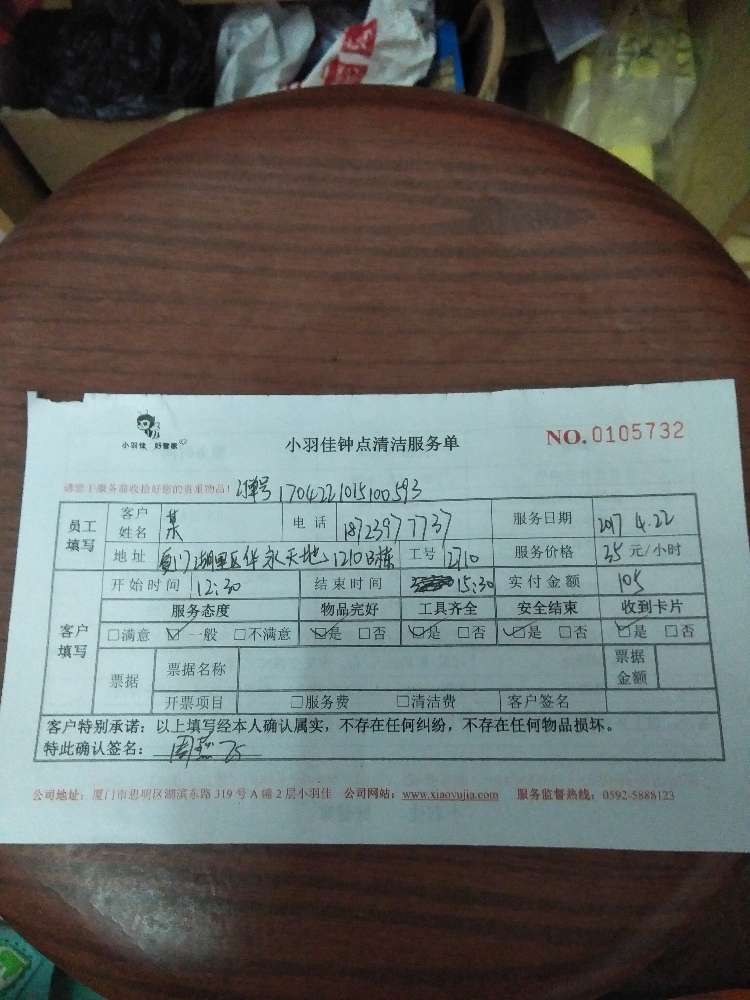 小羽佳 好管家
小羽佳钟点清洁服务单
NO. 0105732
请您于服务前收拾好您的贵重物品! 订单号 1704221015100593
员工填写 客户姓名 电话 18723977737 服务日期 2017 4.22
地址 厦门湖里区华永天地1210B栋 工号 1710 服务价格 35 元/小时
客户填写 开始时间 12:30 结束时间 15:30 实付金额 105
服务态度 物品完好 工具齐全 安全结束 收到卡片
□满意 ☑一般 □不满意 ☑是 □否 ☑是 □否 ☑是 □否 ☑是 □否
票据 票据名称 票据金额
开票项目 □服务费 □清洁费 客户签名
客户特别承诺: 以上填写经本人确认属实,不存在任何纠纷,不存在任何物品损坏。
特此确认签名: 周
公司地址: 厦门市思明区湖滨东路 319 号 A 幢 2 层小羽佳 公司网站: www.xiaoyujia.com 服务监督热线: 0592-5888123